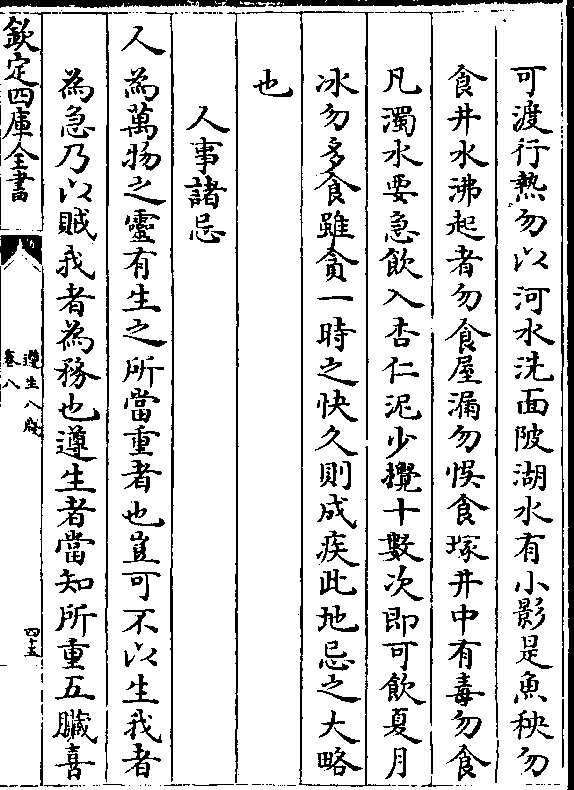 可渡行熱勿以河水洗面陂湖水有小影是魚秧勿
食井水沸起者勿食屋漏勿悞食塚井中有毒勿食
凡濁水要急飲入杏仁泥少攪十數次即可飲夏月
冰勿多食雖貪一時之快久則成疾此地忌之大略
也
人事諸忌
人為萬物之靈有生之所當重者也豈可不以生我者
為急乃以賊我者為務也遵生者當知所重五臟喜
欽定四庫全書
遵生八牋
卷八
四十五